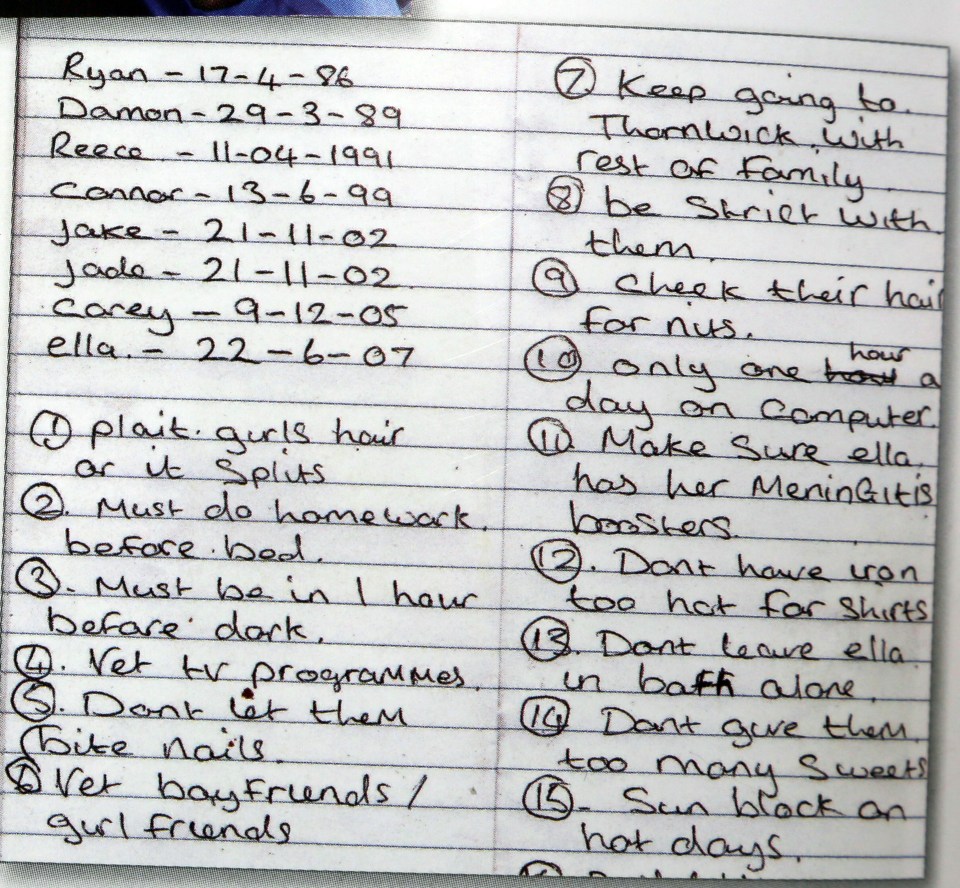 Ryan - 17-4-86
Damon - 29-3-89
Reece - 11-04-1991
Connor - 13-6-99
Jake - 21-11-02
Jade - 21-11-02
Corey - 9-12-05
ella. - 22-6-07
① plait. girls hair
or it Splits
②. Must do homework.
before bed.
③. Must be in 1 hour
before dark.
④. Vet tv programmes.
⑤. Dont let them
bite nails.
⑥ Vet boyfriends /
girl friends
⑦ Keep going to.
Thornwick with
rest of Family.
⑧ be Strict with
them.
⑨ Check their hair
for nits.
⑩ only one hour a
day on Computer.
⑪ Make Sure ella.
has her MeninGitis
boosters.
⑫. Dont have iron
too hot for Shirts
⑬. Dont leave ella
in bath alone.
⑭ Dont give them.
too many Sweets
⑮- Sun block on
hot days.